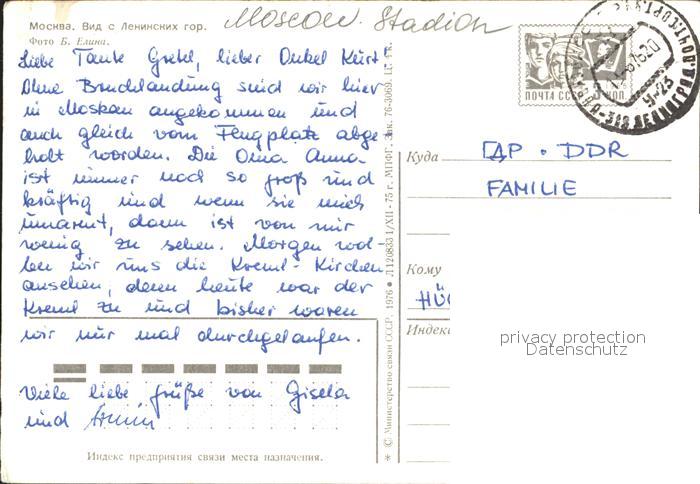 Москва. Вид с Ленинских гор.
Фото Б. Елина.
Moscow. Stadion
Liebe Tante Gretel, lieber Onkel Kurt
Ohne Bruchlandung sind wir hier
in Moskau angekommen und
auch gleich vom Flugplatz abge
holt worden. Die Oma Anna
ist immer noch so groß und
kräftig und wenn sie mich
umarmt, dann ist von mir
wenig zu sehen. Morgen wol-
len wir uns die Kreml-Kirchen
ansehen, denn heute war der
Kreml zu und bisher waren
wir nur mal durchgelaufen.
Viele liebe Grüße von Gisela
und Armin
Индекс предприятия связи места назначения.
* © Министерство связи СССР, 1976 • Л120833 1/XII-75 г. МПФГ. Зак. 76-3069. Ц.
ПОЧТА СССР
КОП.
ЛЕНИНГРАД
Куда ГДР • DDR
FAMILIE
Кому
HÜ
Индекс
privacy protection
Datenschutz